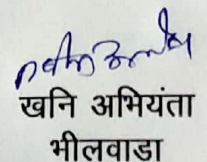 खनि अभियंता
भीलवाडा